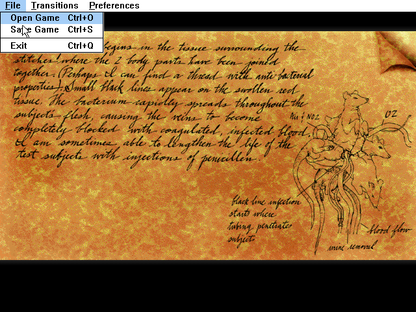 File Transitions Preferences
Open Game Ctrl+O
Save Game Ctrl+S
Exit Ctrl+Q
begins in the tissue surrounding the
stitches where the 2 body parts have been join'd
together. (Perhaps I can find a thread with anti bacterial
properties) Small black lines appear on the swollen red
tissue. The bacterium rapidly spreads throughout the
subjects flesh, causing the veins to become
completely blocked with coagulated, infected blood.
I am sometimes able to lengthen the life of the
test subjects with injections of penicillen.
O2
black line infection
starts where
tubing penetrates
subjects
blood flow
urine removal